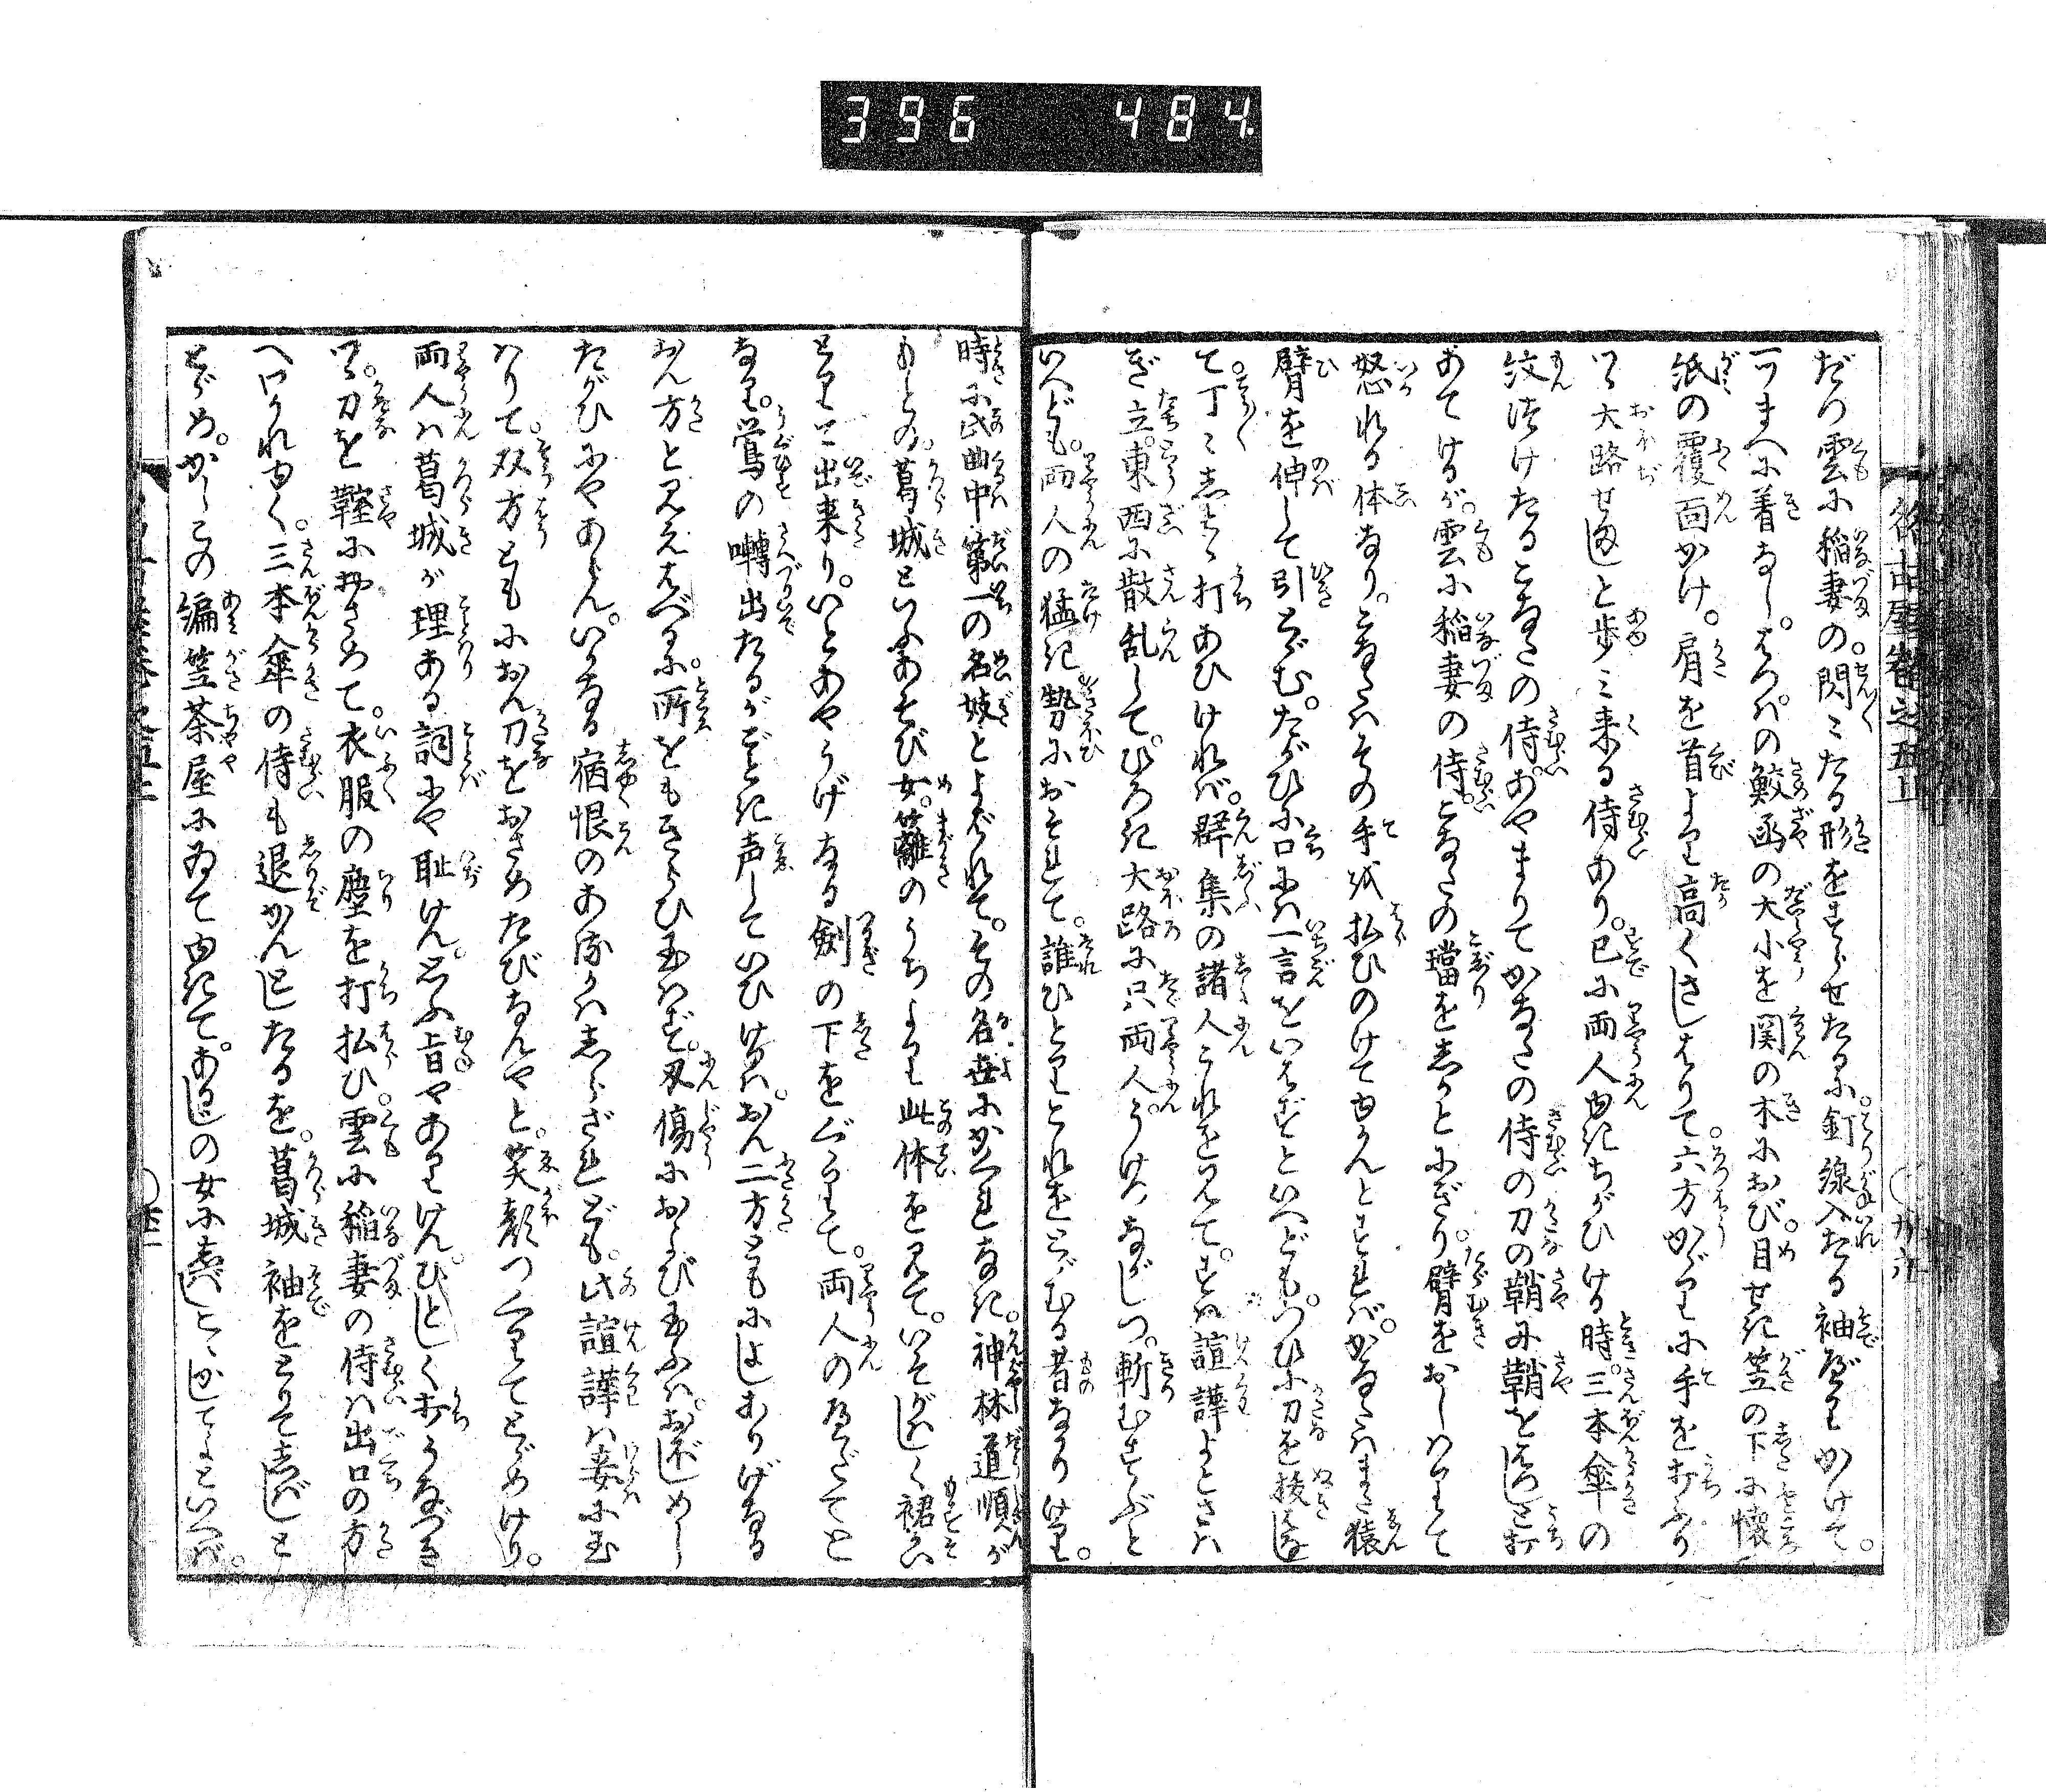 396 484.
だつ雲に稲妻の。閃〻たる形をすらせたるに。釘線入たる袖べりかけて。
一つまへに着なし。そろばの鮫函の大小を関の木におび。目せき笠の下に懐
紙の覆面かけ。肩を首より高くさしはりて。六方かゞりに手を打ふり
つゝ大路せましと歩み来る侍あり。已に両人ゆきちがひける時。三本傘の
紋つけたるこなたの侍。あやまりてかなたの侍の刀の鞘に鞘をはしと打
あてけるが。雲に稲妻の侍。こなたの璫をしかとにぎり。臂をおしはりて
怒れる体なり。こなたはその手を払ひのけてゆかんとすれば。かなたはまた猿
臂を伸して引とゞむ。たがひに口には一言をいはずといへども。つひに刀を抜はなし
て。丁〻しとゝ打あひければ。群集の諸人これを見て。すは諠譁よとさわ
ぎ立。東西に散乱して。ひろき大路に只両人。うけつながしつ。斬むすぶと
いへども。両人の猛き勢におそれて。誰ひとりとれをとゞむる者なかりけり。
時に此曲中第一の名妓とよばれて。その名世にかくれなき。神林道順が
もとの。葛城といふあそび女。籬のうちより此体を見て。いそがはしく裙かい
とりて出来り。いとあやうげなる劔の下をくゞりて。両人のへだてと
なり。鶯の囀出たるがごとき声していひけるは。おん二方ともによしありげなる
おん方と見えはべるに。所をもきらひ玉はず。刃傷におよび玉ふは。おぼしめし
たがひにやあらん。いかなる宿恨のあるかはしらざれども。此諠譁は妾に玉
はりて。双方ともにおん刀をおさめたびなんやと。笑顔つくりてとゞめけり。
両人は葛城が理ある詞にや耻けん。思ふ旨やありけん。ひとしく打うなづき
つゝ。刀を鞘におさめて。衣服の塵を打払ひ。雲に稲妻の侍は出口の方
へわかれゆく。三本傘の侍も退かんとしたるを。葛城袖をとりてしばしと
とゞめ。かしこの編笠茶屋にゐてゆきて。あるじの女にしか〴〵と、かしてよといへば。